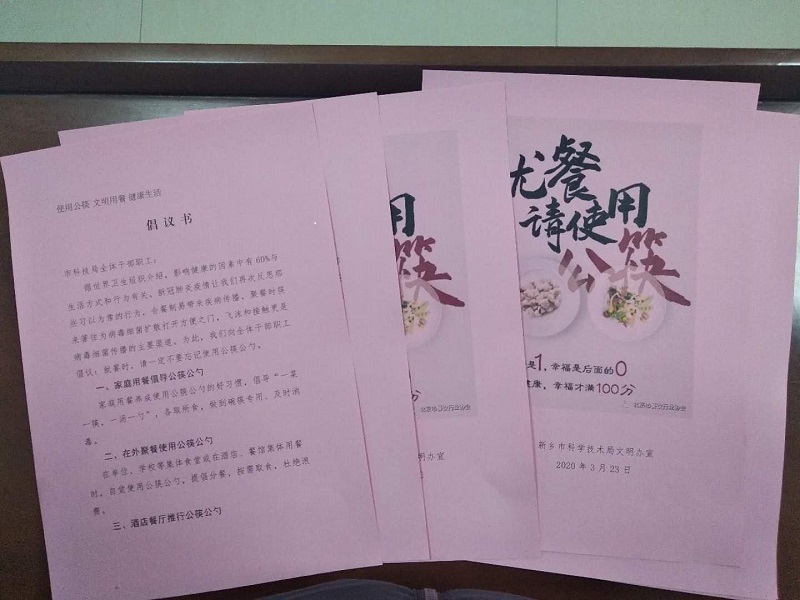 使用公筷 文明用餐 健康生活
倡 议 书
市科技局全体干部职工：
据世界卫生组织介绍，影响健康的因素中有 60%与
生活方式和行为有关。新冠肺炎疫情让我们再次反思那
些习以为常的行为，合餐制易带来疾病传播。聚餐时筷
来箸往为病毒细菌扩散打开方便之门，飞沫和接触更是
病毒细菌传播的主要渠道。为此，我们向全体干部职工
倡议：就餐时，请一定不要忘记使用公筷公勺。
一、家庭用餐倡导公筷公勺
家庭用餐养成使用公筷公勺的好习惯，倡导“一菜
一筷、一汤一勺”，各取所食，做到碗筷专用、及时消
毒。
二、在外聚餐使用公筷公勺
在单位、学校等集体食堂或在酒店、餐馆集体用餐
时，自觉使用公筷公勺，提倡分餐，按需取食，杜绝浪
费。
三、酒店餐厅推行公筷公勺
用
筷
明办室
日
就餐
请使用
公筷
是1，幸福是后面的0
健康，幸福才满100分
新乡市科学技术局文明办室
2020 年 3 月 23 日